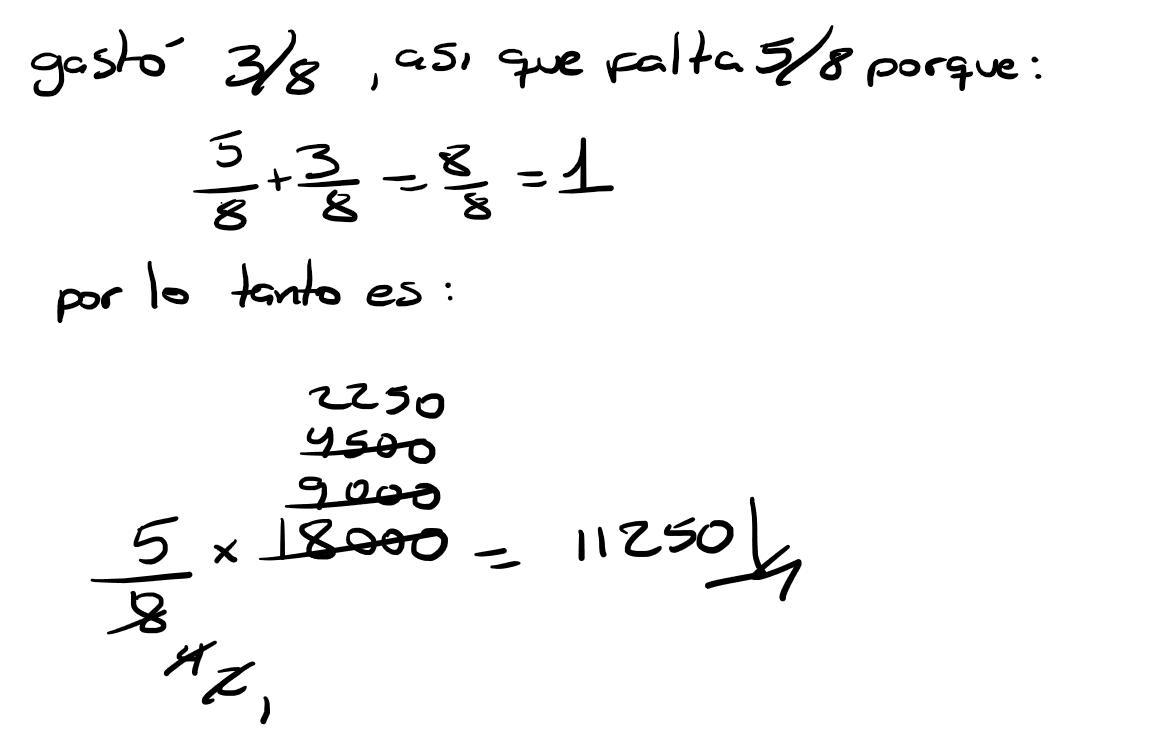 gastó 3/8 , asi que falta 5/8 porque:
5/8 + 3/8 = 8/8 = 1
por lo tanto es:
2250
4500
9000
5/8 x 18000 = 11250
4 2 1